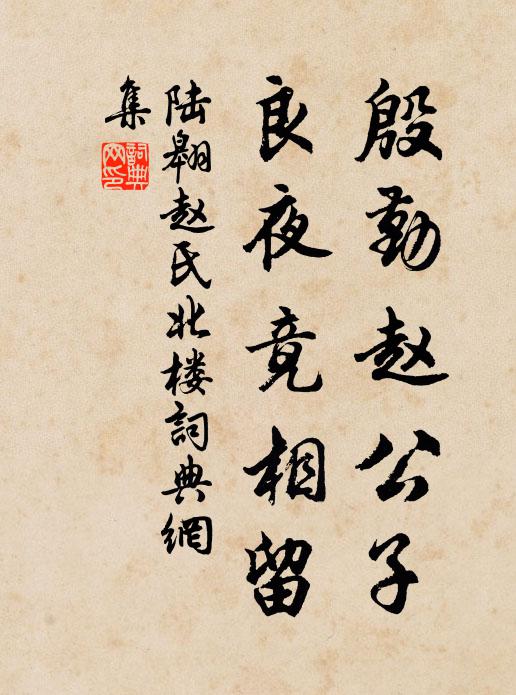 殷勤赵公子
良夜竟相留
陆翱赵氏北楼詞典網
集
詞典
网印